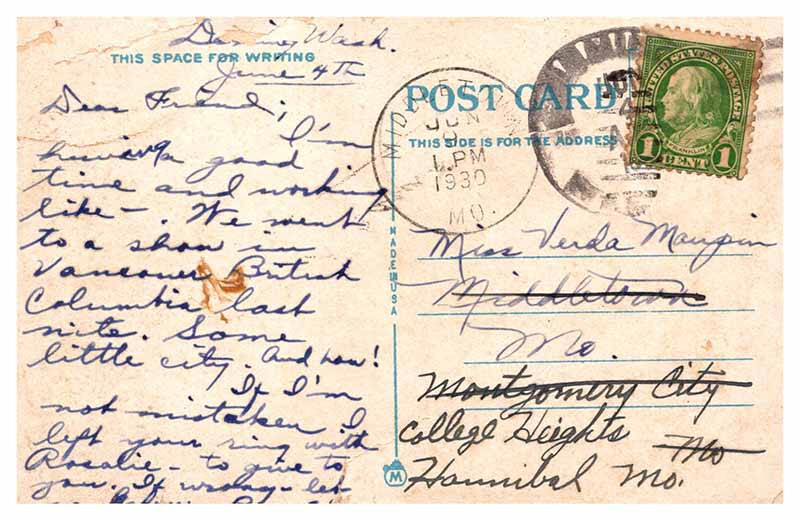 Deming Wash.
THIS SPACE FOR WRITING
June 4th
Dear Friend;
I'm
having a good
time and working
like—. We went
to a show in
Vancouver British
Columbia last
nite. Some
little city. And how!
If I'm
not mistaken I
left your ring with
Rosalie - to give to
you. If wrong - let
POST CARD
THIS SIDE IS FOR THE ADDRESS
JUN
1 PM
1930
MO.
UNITED STATES POSTAGE
FRANKLIN
1 CENT 1
MADE IN USA
Miss Verda Maupin
Middletown
Mo.
Montgomery City
Mo
College Heights
Hannibal Mo.
M